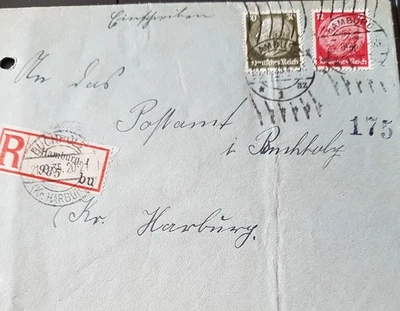 Einschreiben
30
Deutsches Reich
12
Deutsches Reich
HAMBURG
An das
Postamt
i Buchholz
175
R
Hamburg 1
935
bu
BUCHHOLZ
(Kr. HARBURG)
Kr. Harburg.